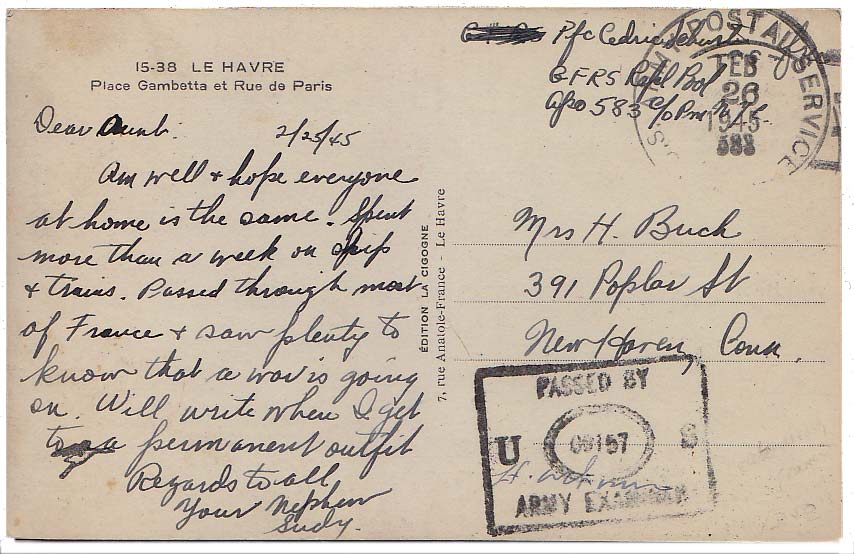 15-38 LE HAVRE
Place Gambetta et Rue de Paris
Dear Aunt. 2/25/45
Am well + hope everyone
at home is the same. Spent
more than a week on ships
+ trains. Passed through most
of France + saw plenty to
know that a war is going
on. Will write when I get
to a permanent outfit
Regards to all
Your Nephew
ÉDITION LA CIGOGNE
7, rue Anatole-France - Le Havre
Pfc
G.F.R.S.
Apo 583 c/o Pm N.Y.
POSTAL SERVICE
FEB
26
1945
583
Mrs H. Buch
391 Poplar St
New Haven, Conn.
PASSED BY
U S
ARMY EXAMINER